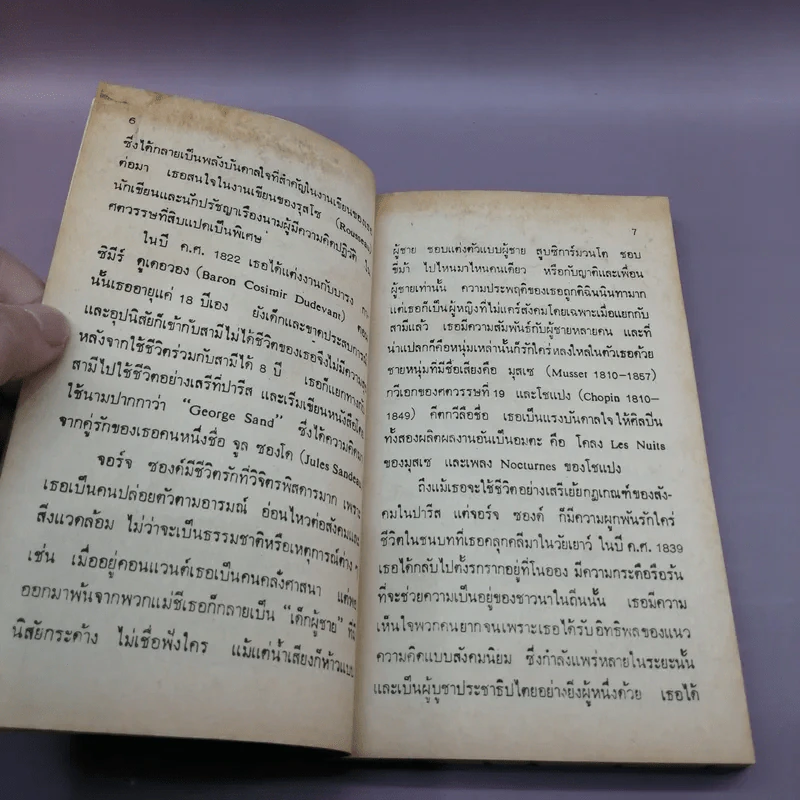 6
ซึ่งได้กลายเป็นพลังบันดาลใจที่สำคัญในงานเขียนของเธอ
ต่อมา เธอสนใจในงานเขียนของรุสโซ (Rousseau)
นักเขียนและนักปรัชญาเรืองนามผู้มีความคิดปฏิวัติ ใน
ศตวรรษที่สิบแปดเป็นพิเศษ
ในปี ค.ศ. 1822 เธอได้แต่งงานกับบารง กา
ซิมีร์ ดูเดอวอง (Baron Cosimir Dudevant) ตอน
นั้นเธออายุแค่ 18 ปีเอง ยังเด็กและขาดประสบการณ์
และอุปนิสัยก็เข้ากับสามีไม่ได้ชีวิตของเธอจึงไม่มีความสุข
หลังจากใช้ชีวิตร่วมกับสามีได้ 8 ปี เธอก็แยกทางกับ
สามีไปใช้ชีวิตอย่างเสรีที่ปารีส และเริ่มเขียนหนังสือโดย
ใช้นามปากกาว่า “George Sand” ซึ่งได้ความคิดมา
จากคู่รักของเธอคนหนึ่งชื่อ จูล ซองโด (Jules Sandeau)
จอร์จ ซองด์มีชีวิตรักที่วิจิตรพิสดารมาก เพราะ
เธอเป็นคนปล่อยตัวตามอารมณ์ อ่อนไหวต่อสังคมและ
สิ่งแวดล้อม ไม่ว่าจะเป็นธรรมชาติหรือเหตุการณ์ต่าง ๆ
เช่น เมื่ออยู่คอนแวนต์เธอเป็นคนคลั่งศาสนา แต่พอ
ออกมาพ้นจากพวกแม่ชีเธอก็กลายเป็น “เด็กผู้ชาย” ที่มี
นิสัยกระด้าง ไม่เชื่อฟังใคร แม้แต่น้ำเสียงก็ห้าวแบบ
7
ผู้ชาย ชอบแต่งตัวแบบผู้ชาย สูบซิการ์มวนโต ชอบ
ขี่ม้า ไปไหนมาไหนคนเดียว หรือกับญาติและเพื่อน
ผู้ชายเท่านั้น ความประพฤติของเธอถูกติฉินนินทามาก
แต่เธอก็เป็นผู้หญิงที่ไม่แคร์สังคมโดยเฉพาะเมื่อแยกกับ
สามีแล้ว เธอมีความสัมพันธ์กับผู้ชายหลายคน และที่
น่าแปลกก็คือหนุ่มเหล่านั้นก็รักใคร่หลงใหลในตัวเธอด้วย
ชายหนุ่มที่มีชื่อเสียงคือ มุสเซ (Musser 1810-1857)
กวีเอกของศตวรรษที่ 19 และโชแปง (Chopin 1810-
1849) คีตกวีลือชื่อ เธอเป็นแรงบันดาลใจให้ศิลปิน
ทั้งสองผลิตผลงานอันเป็นอมตะ คือ โคลง Les Nuits
ของมุสเซ และเพลง Nocturnes ของโชแปง
ถึงแม้เธอจะใช้ชีวิตอย่างเสรีเย้ยกฎเกณฑ์ของสัง-
คมในปารีส แต่จอร์จ ซองด์ ก็มีความผูกพันรักใคร่
ชีวิตในชนบทที่เธอคลุกคลีมาในวัยเยาว์ ในปี ค.ศ. 1839
เธอได้กลับไปตั้งรกรากอยู่ที่โนออง มีความกระตือรือร้น
ที่จะช่วยความเป็นอยู่ของชาวนาในถิ่นนั้น เธอมีความ
เห็นใจพวกคนยากจนเพราะเธอได้รับอิทธิพลของแนว
ความคิดแบบสังคมนิยม ซึ่งกำลังแพร่หลายในระยะนั้น
และเป็นผู้บูชาประชาธิปไตยอย่างยิ่งผู้หนึ่งด้วย เธอได้